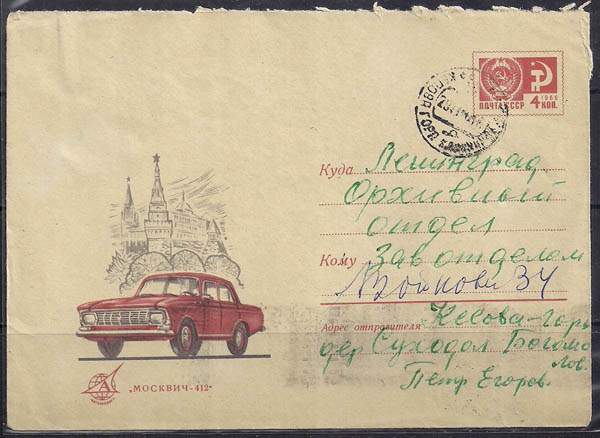 ПОЧТА СССР
1966
4 КОП.
Куда Ленинград
Орхивный
отдел
Кому Зав отделом
Войкова 34
Адрес отправителя Кесова-гора
дер Суходол Богомо
лов.
Петр Егоров.
„МОСКВИЧ-412“